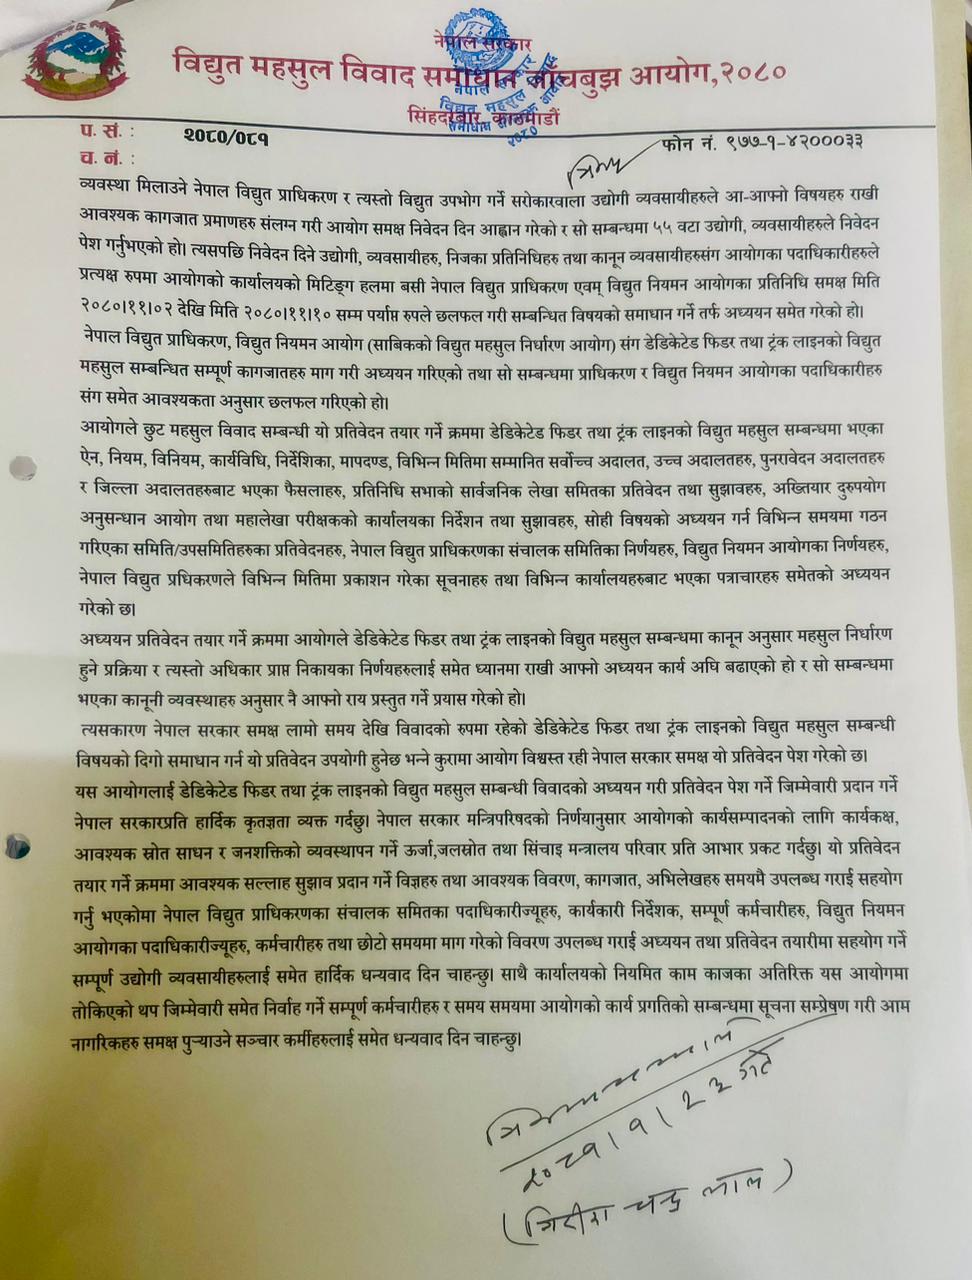 नेपाल सरकार
विद्युत महसुल विवाद समाधान जाँचबुझ आयोग,२०८०
सिंहदरबार, काठमाडौं
नेपाल सरकार
विद्युत महसुल विवाद
समाधान जाँचबुझ आयोग
२०८०
प. सं. : २०८०/०८१
फोन नं. ९७७-१-४२०००३३
च. नं. :
व्यवस्था मिलाउने नेपाल विद्युत प्राधिकरण र त्यस्तो विद्युत उपभोग गर्ने सरोकारवाला उद्योगी व्यवसायीहरुले आ-आफ्नो विषयहरु राखी
आवश्यक कागजात प्रमाणहरु संलग्न गरी आयोग समक्ष निवेदन दिन आह्वान गरेको र सो सम्बन्धमा ५५ वटा उद्योगी, व्यवसायीहरुले निवेदन
पेश गर्नुभएको हो। त्यसपछि निवेदन दिने उद्योगी, व्यवसायीहरु, निजका प्रतिनिधिहरु तथा कानून व्यवसायीहरुसंग आयोगका पदाधिकारीहरुले
प्रत्यक्ष रुपमा आयोगको कार्यालयको मिटिङ्ग हलमा बसी नेपाल विद्युत प्राधिकरण एवम् विद्युत नियमन आयोगका प्रतिनिधि समक्ष मिति
२०८०।११।०२ देखि मिति २०८०।११।१० सम्म पर्याप्त रुपले छलफल गरी सम्बन्धित विषयको समाधान गर्ने तर्फ अध्ययन समेत गरेको हो।
नेपाल विद्युत प्राधिकरण, विद्युत नियमन आयोग (साबिकको विद्युत महसुल निर्धारण आयोग) संग डेडिकेटेड फिडर तथा ट्रंक लाइनको विद्युत
महसुल सम्बन्धित सम्पूर्ण कागजातहरु माग गरी अध्ययन गरिएको तथा सो सम्बन्धमा प्राधिकरण र विद्युत नियमन आयोगका पदाधिकारीहरु
संग समेत आवश्यकता अनुसार छलफल गरिएको हो।
आयोगले छुट महसुल विवाद सम्बन्धी यो प्रतिवेदन तयार गर्ने क्रममा डेडिकेटेड फिडर तथा ट्रंक लाइनको विद्युत महसुल सम्बन्धमा भएका
ऐन, नियम, विनियम, कार्यविधि, निर्देशिका, मापदण्ड, विभिन्न मितिमा सम्मानित सर्वोच्च अदालत, उच्च अदालतहरु, पुनरावेदन अदालतहरु
र जिल्ला अदालतहरुबाट भएका फैसलाहरु, प्रतिनिधि सभाको सार्वजनिक लेखा समितका प्रतिवेदन तथा सुझावहरु, अख्तियार दुरुपयोग
अनुसन्धान आयोग तथा महालेखा परीक्षकको कार्यालयका निर्देशन तथा सुझावहरु, सोही विषयको अध्ययन गर्न विभिन्न समयमा गठन
गरिएका समिति/उपसमितिहरुका प्रतिवेदनहरु, नेपाल विद्युत प्राधिकरणका संचालक समितिका निर्णयहरु, विद्युत नियमन आयोगका निर्णयहरु,
नेपाल विद्युत प्रधिकरणले विभिन्न मितिमा प्रकाशन गरेका सूचनाहरु तथा विभिन्न कार्यालयहरुबाट भएका पत्राचारहरु समेतको अध्ययन
गरेको छ।
अध्ययन प्रतिवेदन तयार गर्ने क्रममा आयोगले डेडिकेटेड फिडर तथा ट्रंक लाइनको विद्युत महसुल सम्बन्धमा कानून अनुसार महसुल निर्धारण
हुने प्रक्रिया र त्यस्तो अधिकार प्राप्त निकायका निर्णयहरुलाई समेत ध्यानमा राखी आफ्नो अध्ययन कार्य अघि बढाएको हो र सो सम्बन्धमा
भएका कानूनी व्यवस्थाहरु अनुसार नै आफ्नो राय प्रस्तुत गर्ने प्रयास गरेको हो।
त्यसकारण नेपाल सरकार समक्ष लामो समय देखि विवादको रुपमा रहेको डेडिकेटेड फिडर तथा ट्रंक लाइनको विद्युत महसुल सम्बन्धी
विषयको दिगो समाधान गर्न यो प्रतिवेदन उपयोगी हुनेछ भन्ने कुरामा आयोग विश्वस्त रही नेपाल सरकार समक्ष यो प्रतिवेदन पेश गरेको छ।
यस आयोगलाई डेडिकेटेड फिडर तथा ट्रंक लाइनको विद्युत महसुल सम्बन्धी विवादको अध्ययन गरी प्रतिवेदन पेश गर्ने जिम्मेवारी प्रदान गर्ने
नेपाल सरकारप्रति हार्दिक कृतज्ञता व्यक्त गर्दछु। नेपाल सरकार मन्त्रिपरिषदको निर्णयानुसार आयोगको कार्यसम्पादनको लागि कार्यकक्ष,
आवश्यक स्रोत साधन र जनशक्तिको व्यवस्थापन गर्ने ऊर्जा,जलस्रोत तथा सिंचाइ मन्त्रालय परिवार प्रति आभार प्रकट गर्दछु। यो प्रतिवेदन
तयार गर्ने क्रममा आवश्यक सल्लाह सुझाव प्रदान गर्ने विज्ञहरु तथा आवश्यक विवरण, कागजात, अभिलेखहरु समयमै उपलब्ध गराई सहयोग
गर्नु भएकोमा नेपाल विद्युत प्राधिकरणका संचालक समितका पदाधिकारीज्यूहरु, कार्यकारी निर्देशक, सम्पूर्ण कर्मचारीहरु, विद्युत नियमन
आयोगका पदाधिकारीज्यूहरु, कर्मचारीहरु तथा छोटो समयमा माग गरेको विवरण उपलब्ध गराई अध्ययन तथा प्रतिवेदन तयारीमा सहयोग गर्ने
सम्पूर्ण उद्योगी व्यवसायीहरुलाई समेत हार्दिक धन्यवाद दिन चाहन्छु। साथै कार्यालयको नियमित काम काजका अतिरिक्त यस आयोगमा
तोकिएको थप जिम्मेवारी समेत निर्वाह गर्ने सम्पूर्ण कर्मचारीहरु र समय समयमा आयोगको कार्य प्रगतिको सम्बन्धमा सूचना सम्प्रेषण गरी आम
नागरिकहरु समक्ष पुऱ्याउने सञ्चार कर्मीहरुलाई समेत धन्यवाद दिन चाहन्छु।
२०८१।१।२३ गते
(गिरीश चन्द्र लाल)